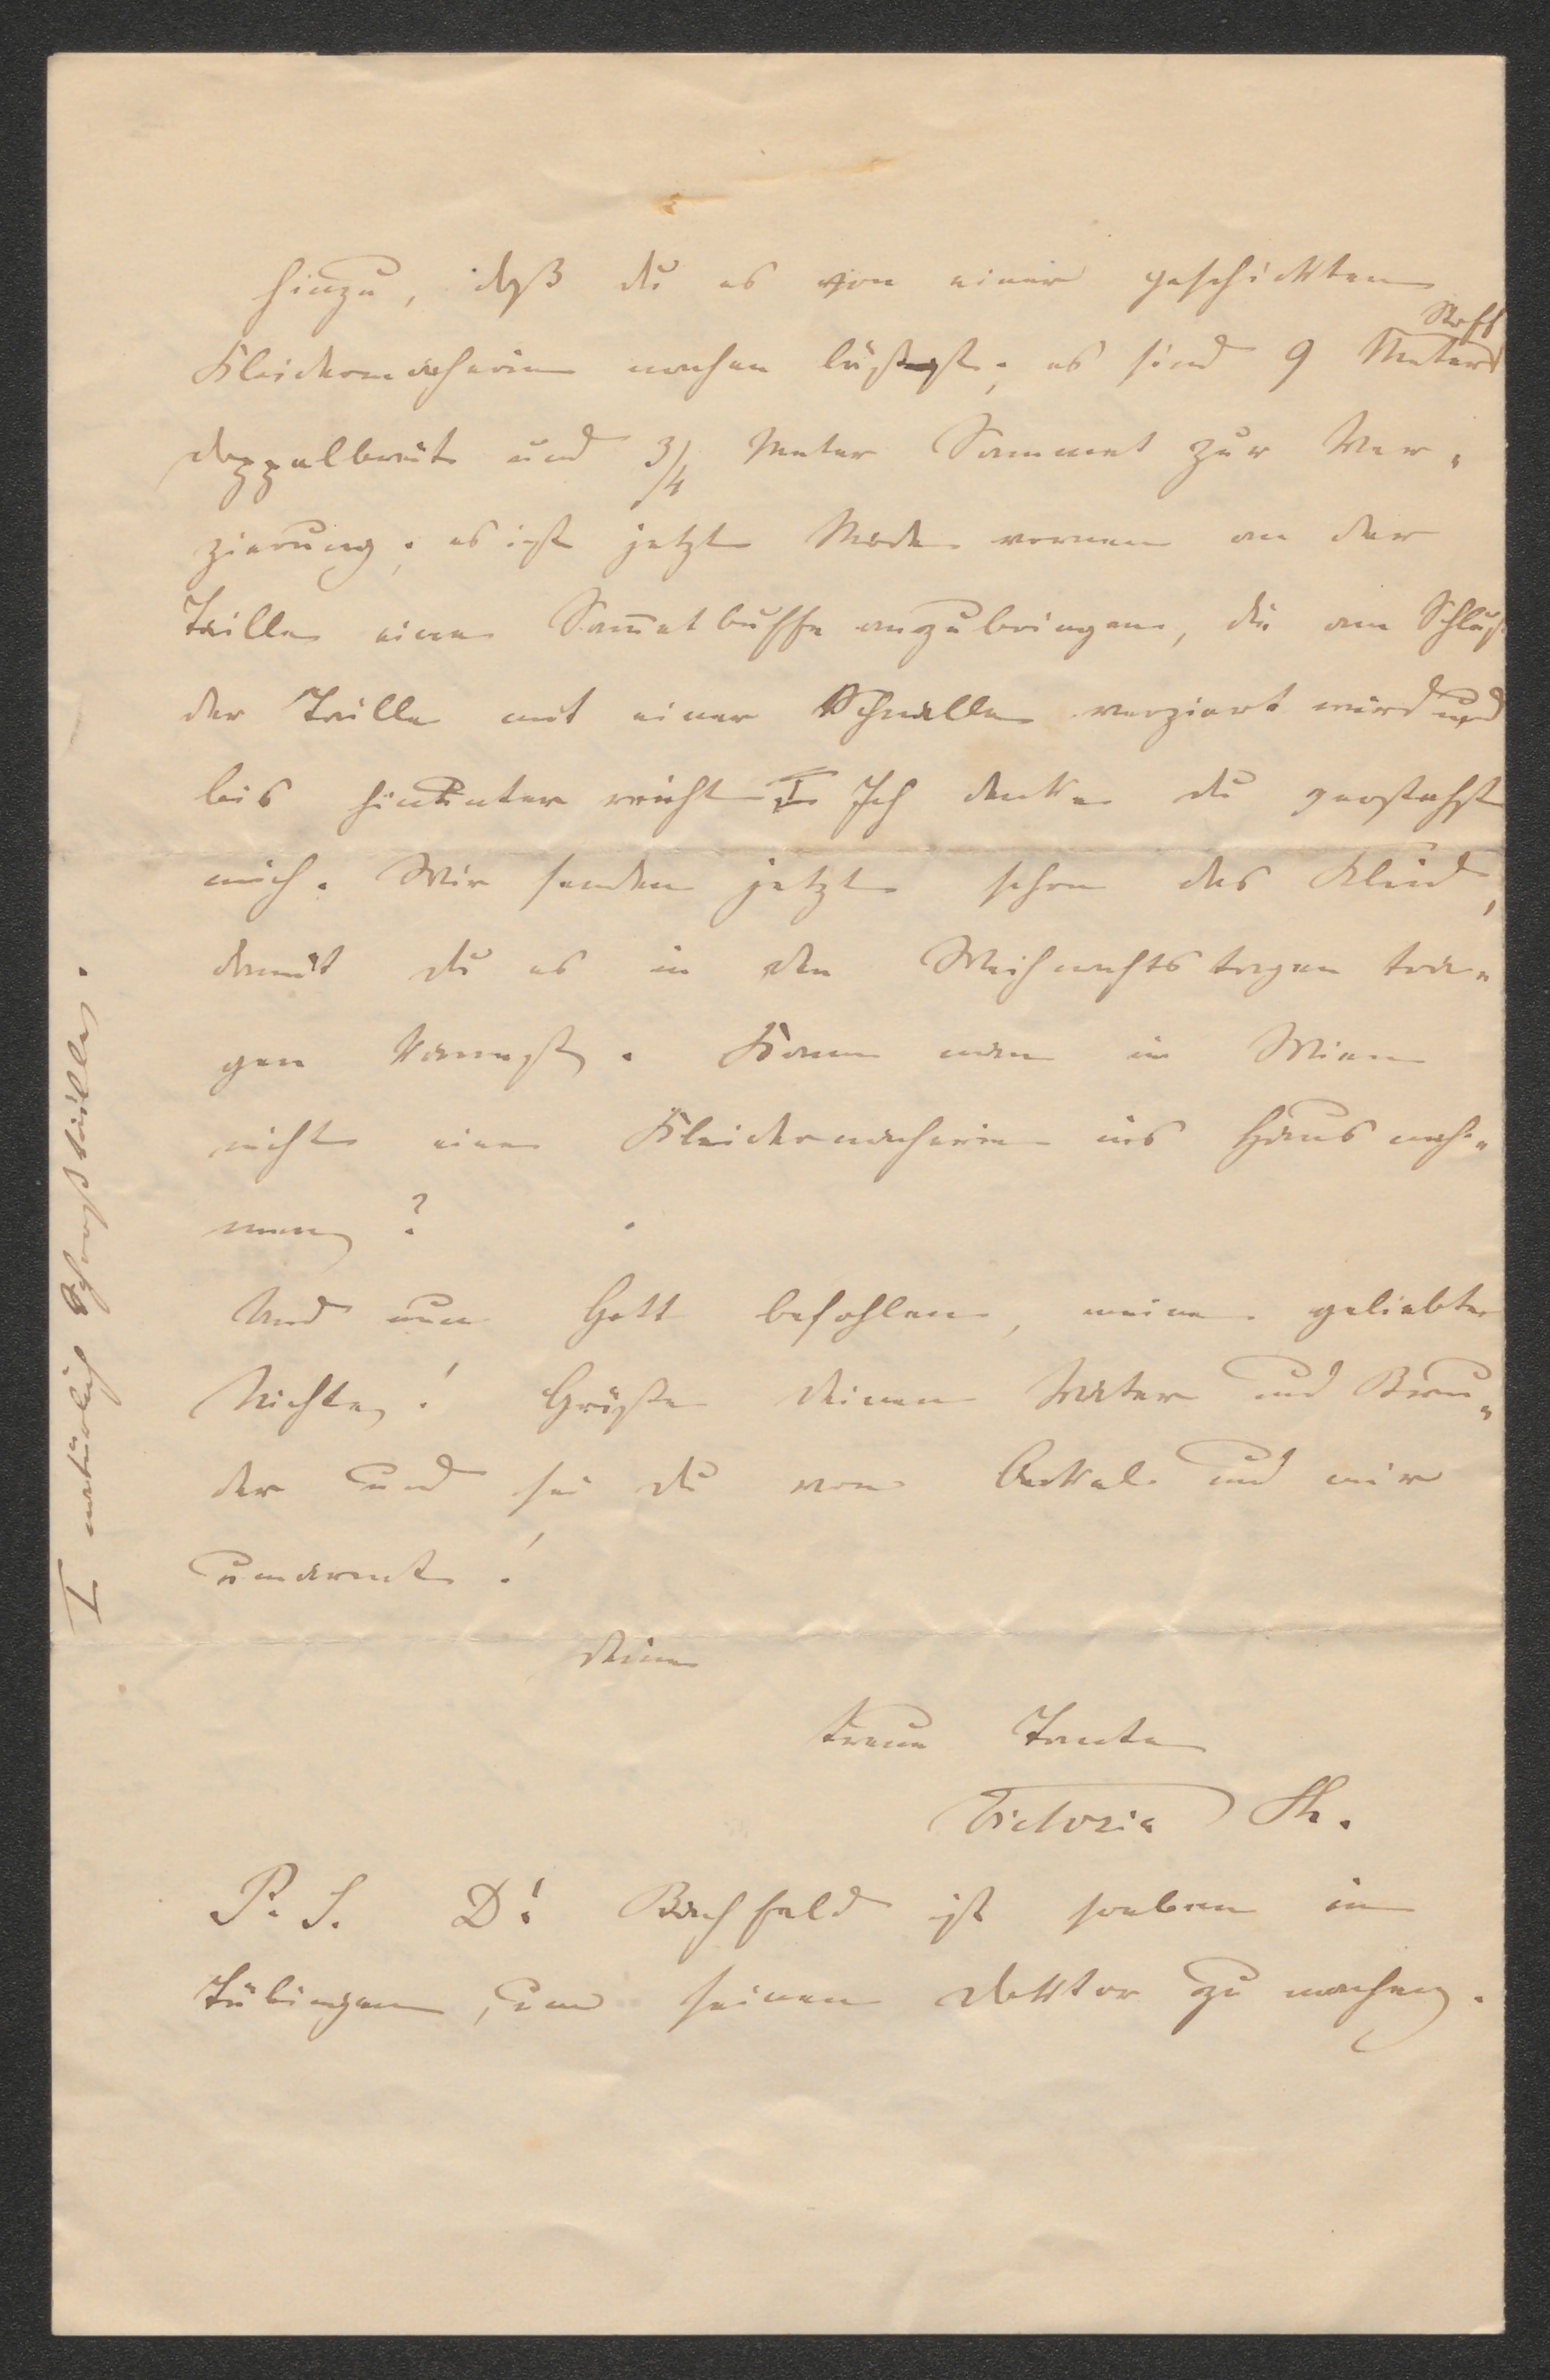 hinzu, daß du es von einer geschickten
Kleidermacherin machen läßest; es sind 9 Meter Stoff
doppelbreit und 3/4 Meter Sammet zur Ver-
zierung; es ist jetzt Mode vornen an der
Taille eine Sam̅etbuffe anzubringen, die am Schluß
der Taille mit einer Schnalle verziert wird und
bis hinunter reicht I Ich denke du verstehst
mich. Wir senden jetzt schon das Kleid,
damit du es in den Weihnachtstagen tra-
gen kannst. Kann man in Wien
nicht eine Kleidermacherin ins Haus neh-
men?
Und nun Gott befohlen, meine geliebte
Nichte! Grüße deinen Vater und Bru-
der und sei du von Onkel und mir
umarmt!
Deine
treue Tante
Victoria
P. S. Dr. Bachfeld ist soeben in
Tübingen, um seinen Doktor zu machen.
I natürlich